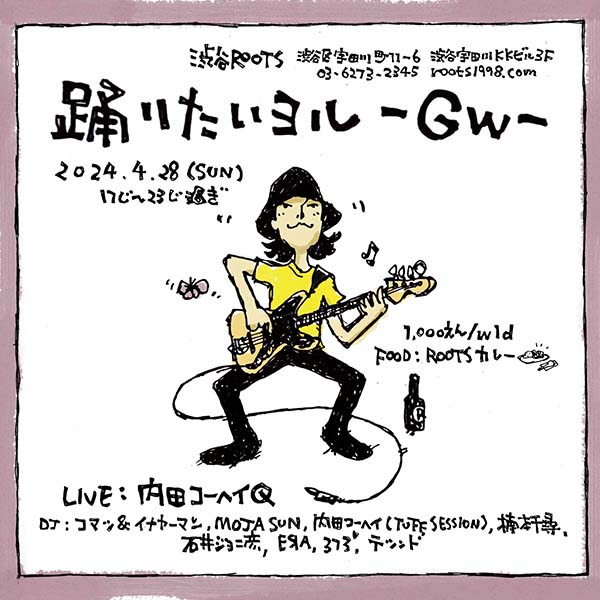 渋谷ROOTS 渋谷区宇田川町11-6 渋谷宇田川KKビル3F
03-6273-2345 roots1998.com
踊りたいヨル -GW-
2024.4.28(SUN)
17じ〜23じ過ぎ
1,000えん/w1d
FOOD:ROOTSカレー
LIVE:内田コーヘイQ
DJ:コマツ&イナヤーマン,MOJA SUN,内田コーヘイ(TUFF SESSION),
石井ジョニ恋,EЯA,373,テツンド